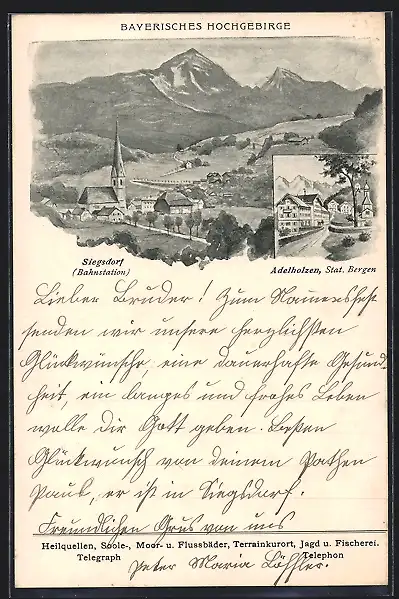 BAYERISCHES HOCHGEBIRGE
Siegsdorf
(Bahnstation)
Adelholzen, Stat. Bergen
Lieber Bruder! Zum Namensfest
senden wir unsere herzlichsten
Glückwünsche, eine dauerhafte Gesund-
heit, ein langes und frohes Leben
wolle dir Gott geben. Besten
Glückwunsch von deinem Pathen
Paul, er ist in Siegsdorf.
Freundlichen Grus von uns
Heilquellen, Soole-, Moor- u. Flussbäder, Terrainkurort, Jagd u. Fischerei.
Telegraph Telephon
Peter Maria Löffler.